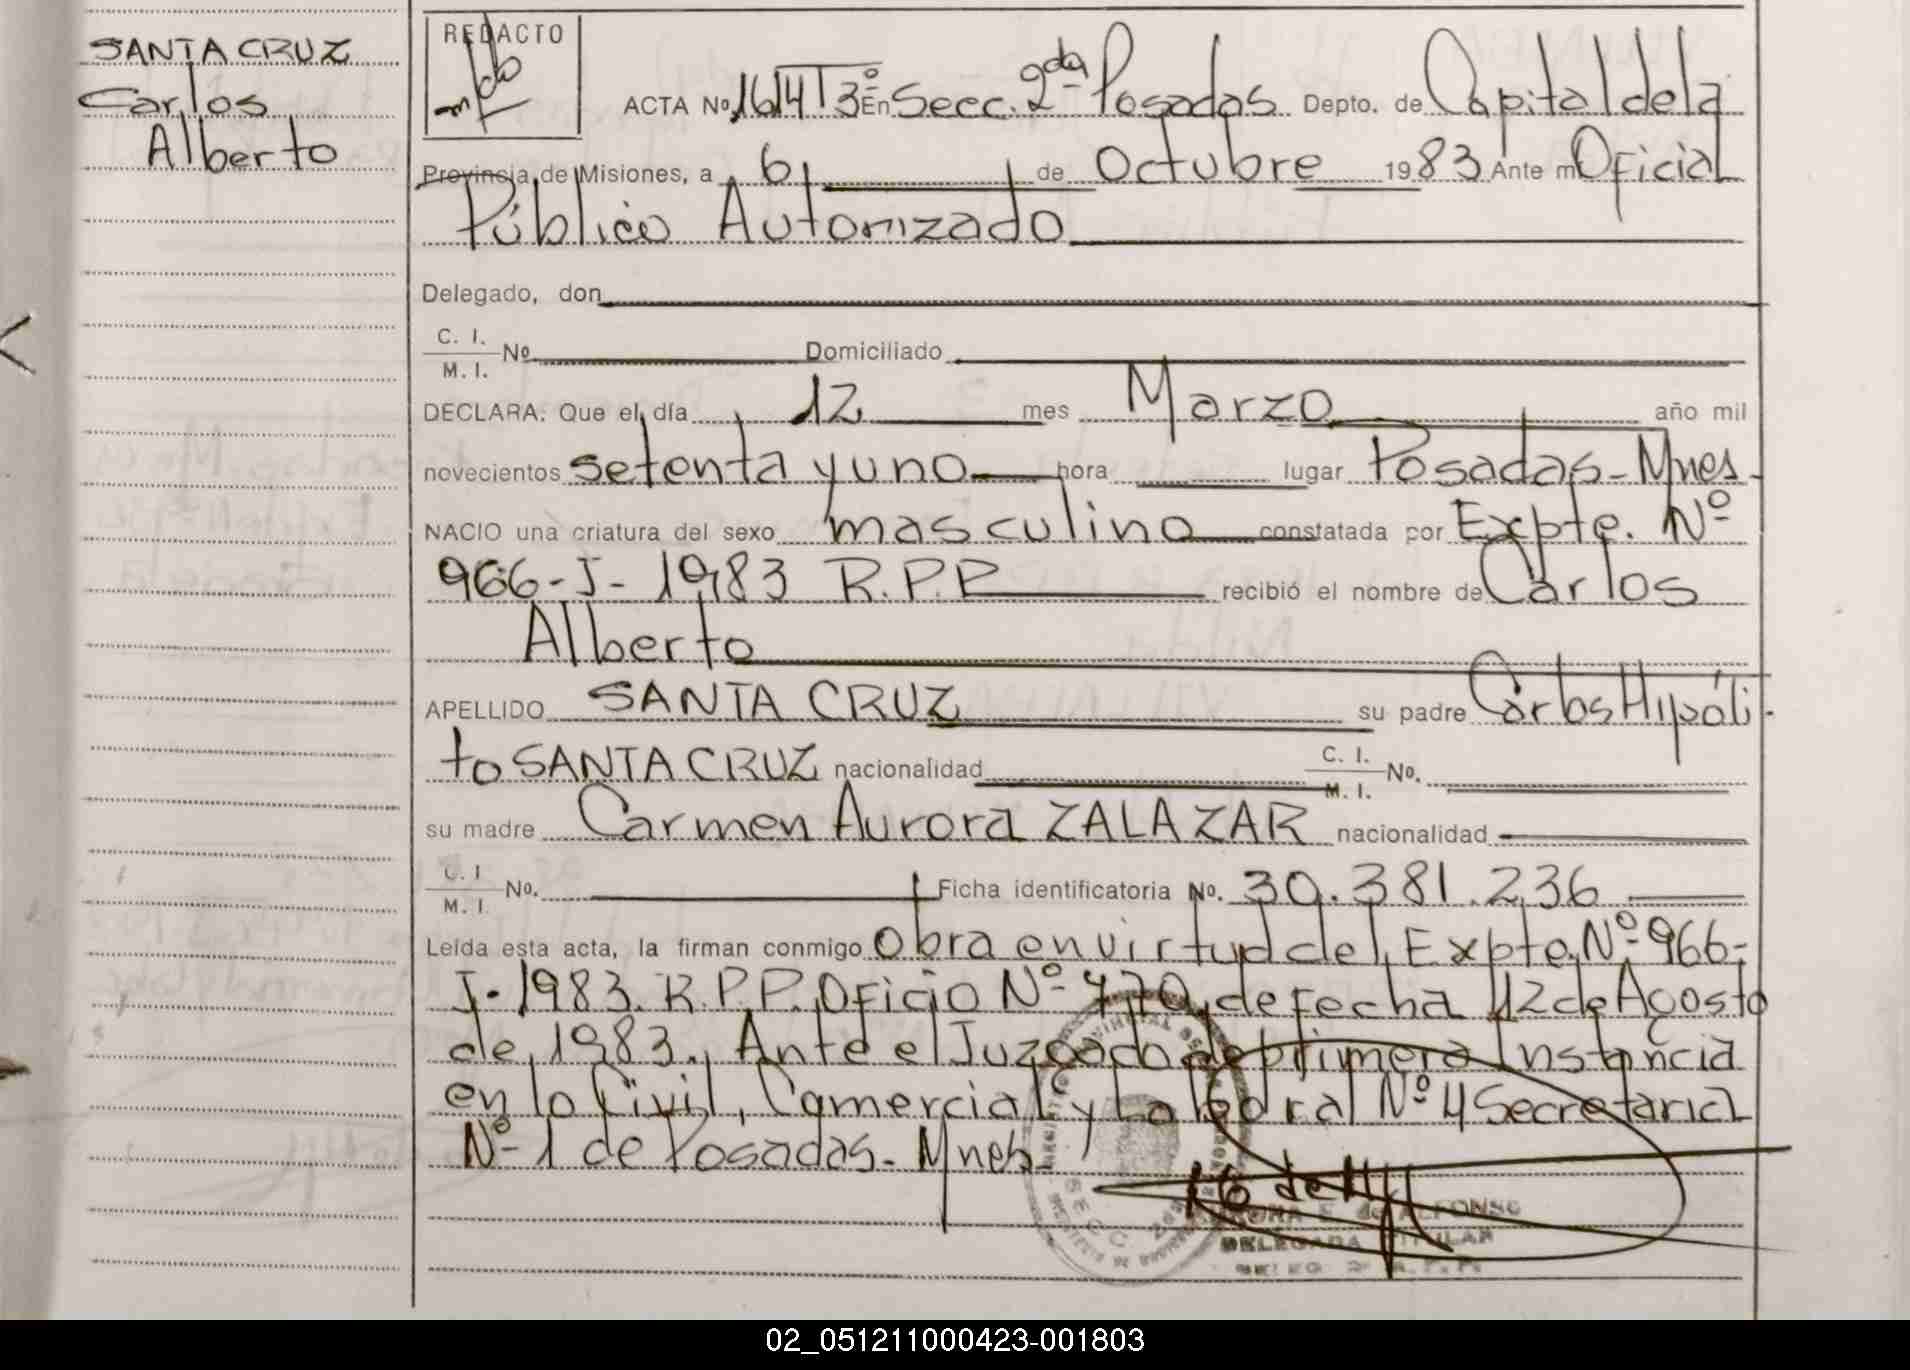 SANTA CRUZ
Carlos
Alberto
REDACTO
ACTA No 1614 T 3º En Secc. 2da Posadas Depto. de Capital de la
Provincia de Misiones, a 6 de Octubre 1983 Ante mi Oficial
Público Autorizado
Delegado, don
C. I.
M. I. No Domiciliado
DECLARA: Que el día 12 mes Marzo año mil
novecientos setenta y uno hora lugar Posadas - Mnes -
NACIO una criatura del sexo masculino constatada por Expte. Nº
966-J-1983 R.P.P recibió el nombre de Carlos
Alberto
APELLIDO SANTA CRUZ su padre Carlos Hipóli-
to SANTA CRUZ nacionalidad C. I. M. I. No.
su madre Carmen Aurora ZALAZAR nacionalidad
C. I. M. I. No. Ficha identificatoria No. 30.381.236
Leída esta acta, la firman conmigo Obra en virtud del Expte. Nº 966-
J-1983. R.P.P. Oficio Nº 470, de fecha 12 de Agosto
de 1983., Ante el Juzgado de Primera Instancia
en lo Civil, Comercial y Laboral Nº 4 Secretaria
Nº 1 de Posadas - Mnes.
E. de ALFONSO
DELEGADA TITULAR
DELEG. 2ª R.P.P.
02_051211000423-001803